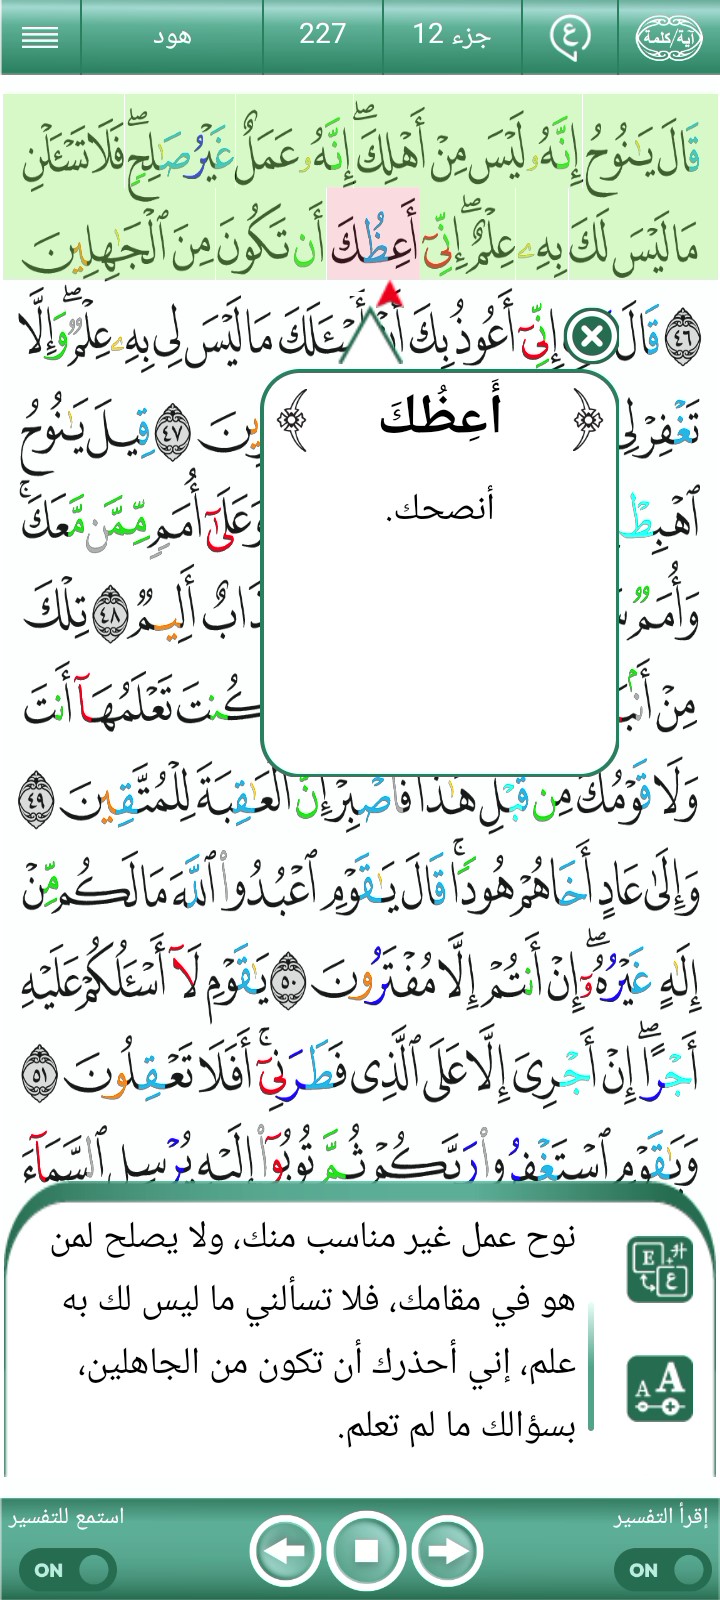 آية/كلمة
ع
جزء 12
227
هود
قَالَ يَـٰنُوحُ إِنَّهُۥ لَيْسَ مِنْ أَهْلِكَ ۖ إِنَّهُۥ عَمَلٌ غَيْرُ صَـٰلِحٍ ۖ فَلَا تَسْـَٔلْنِ
مَا لَيْسَ لَكَ بِهِۦ عِلْمٌ ۖ إِنِّىٓ أَعِظُكَ أَن تَكُونَ مِنَ ٱلْجَـٰهِلِينَ
٤٦ قَالَ إِنِّىٓ أَعُوذُ بِكَ أَنْ أَسْـَٔلَكَ مَا لَيْسَ لِى بِهِۦ عِلْمٌ ۖ وَإِلَّا
تَغْفِرْ لِى ٤٧ قِيلَ يَـٰنُوحُ
ٱهْبِطْ وَعَلَىٰٓ أُمَمٍ مِّمَّن مَّعَكَ ۚ
وَأُمَمٌ أَلِيمٌ ٤٨ تِلْكَ
مِنْ كُنتَ تَعْلَمُهَآ أَنتَ
وَلَا قَوْمُكَ مِن قَبْلِ هَـٰذَا فَٱصْبِرْ إِنَّ ٱلْعَـٰقِبَةَ لِلْمُتَّقِينَ ٤٩
وَإِلَىٰ عَادٍ أَخَاهُمْ هُودًا ۚ قَالَ يَـٰقَوْمِ ٱعْبُدُوا۟ ٱللَّهَ مَا لَكُم مِّنْ
إِلَـٰهٍ غَيْرُهُۥٓ ۖ إِنْ أَنتُمْ إِلَّا مُفْتَرُونَ ٥٠ يَـٰقَوْمِ لَآ أَسْـَٔلُكُمْ عَلَيْهِ
أَجْرًا ۖ إِنْ أَجْرِىَ إِلَّا عَلَى ٱلَّذِى فَطَرَنِىٓ ۚ أَفَلَا تَعْقِلُونَ ٥١
وَيَـٰقَوْمِ ٱسْتَغْفِرُوا۟ رَبَّكُمْ ثُمَّ تُوبُوٓا۟ إِلَيْهِ يُرْسِلِ ٱلسَّمَآءَ
أَعِظُكَ
أنصحك.
نوح عمل غير مناسب منك، ولا يصلح لمن
هو في مقامك، فلا تسألني ما ليس لك به
علم، إني أحذرك أن تكون من الجاهلين،
بسؤالك ما لم تعلم.
إقرأ التفسير
استمع للتفسير
ON
ON